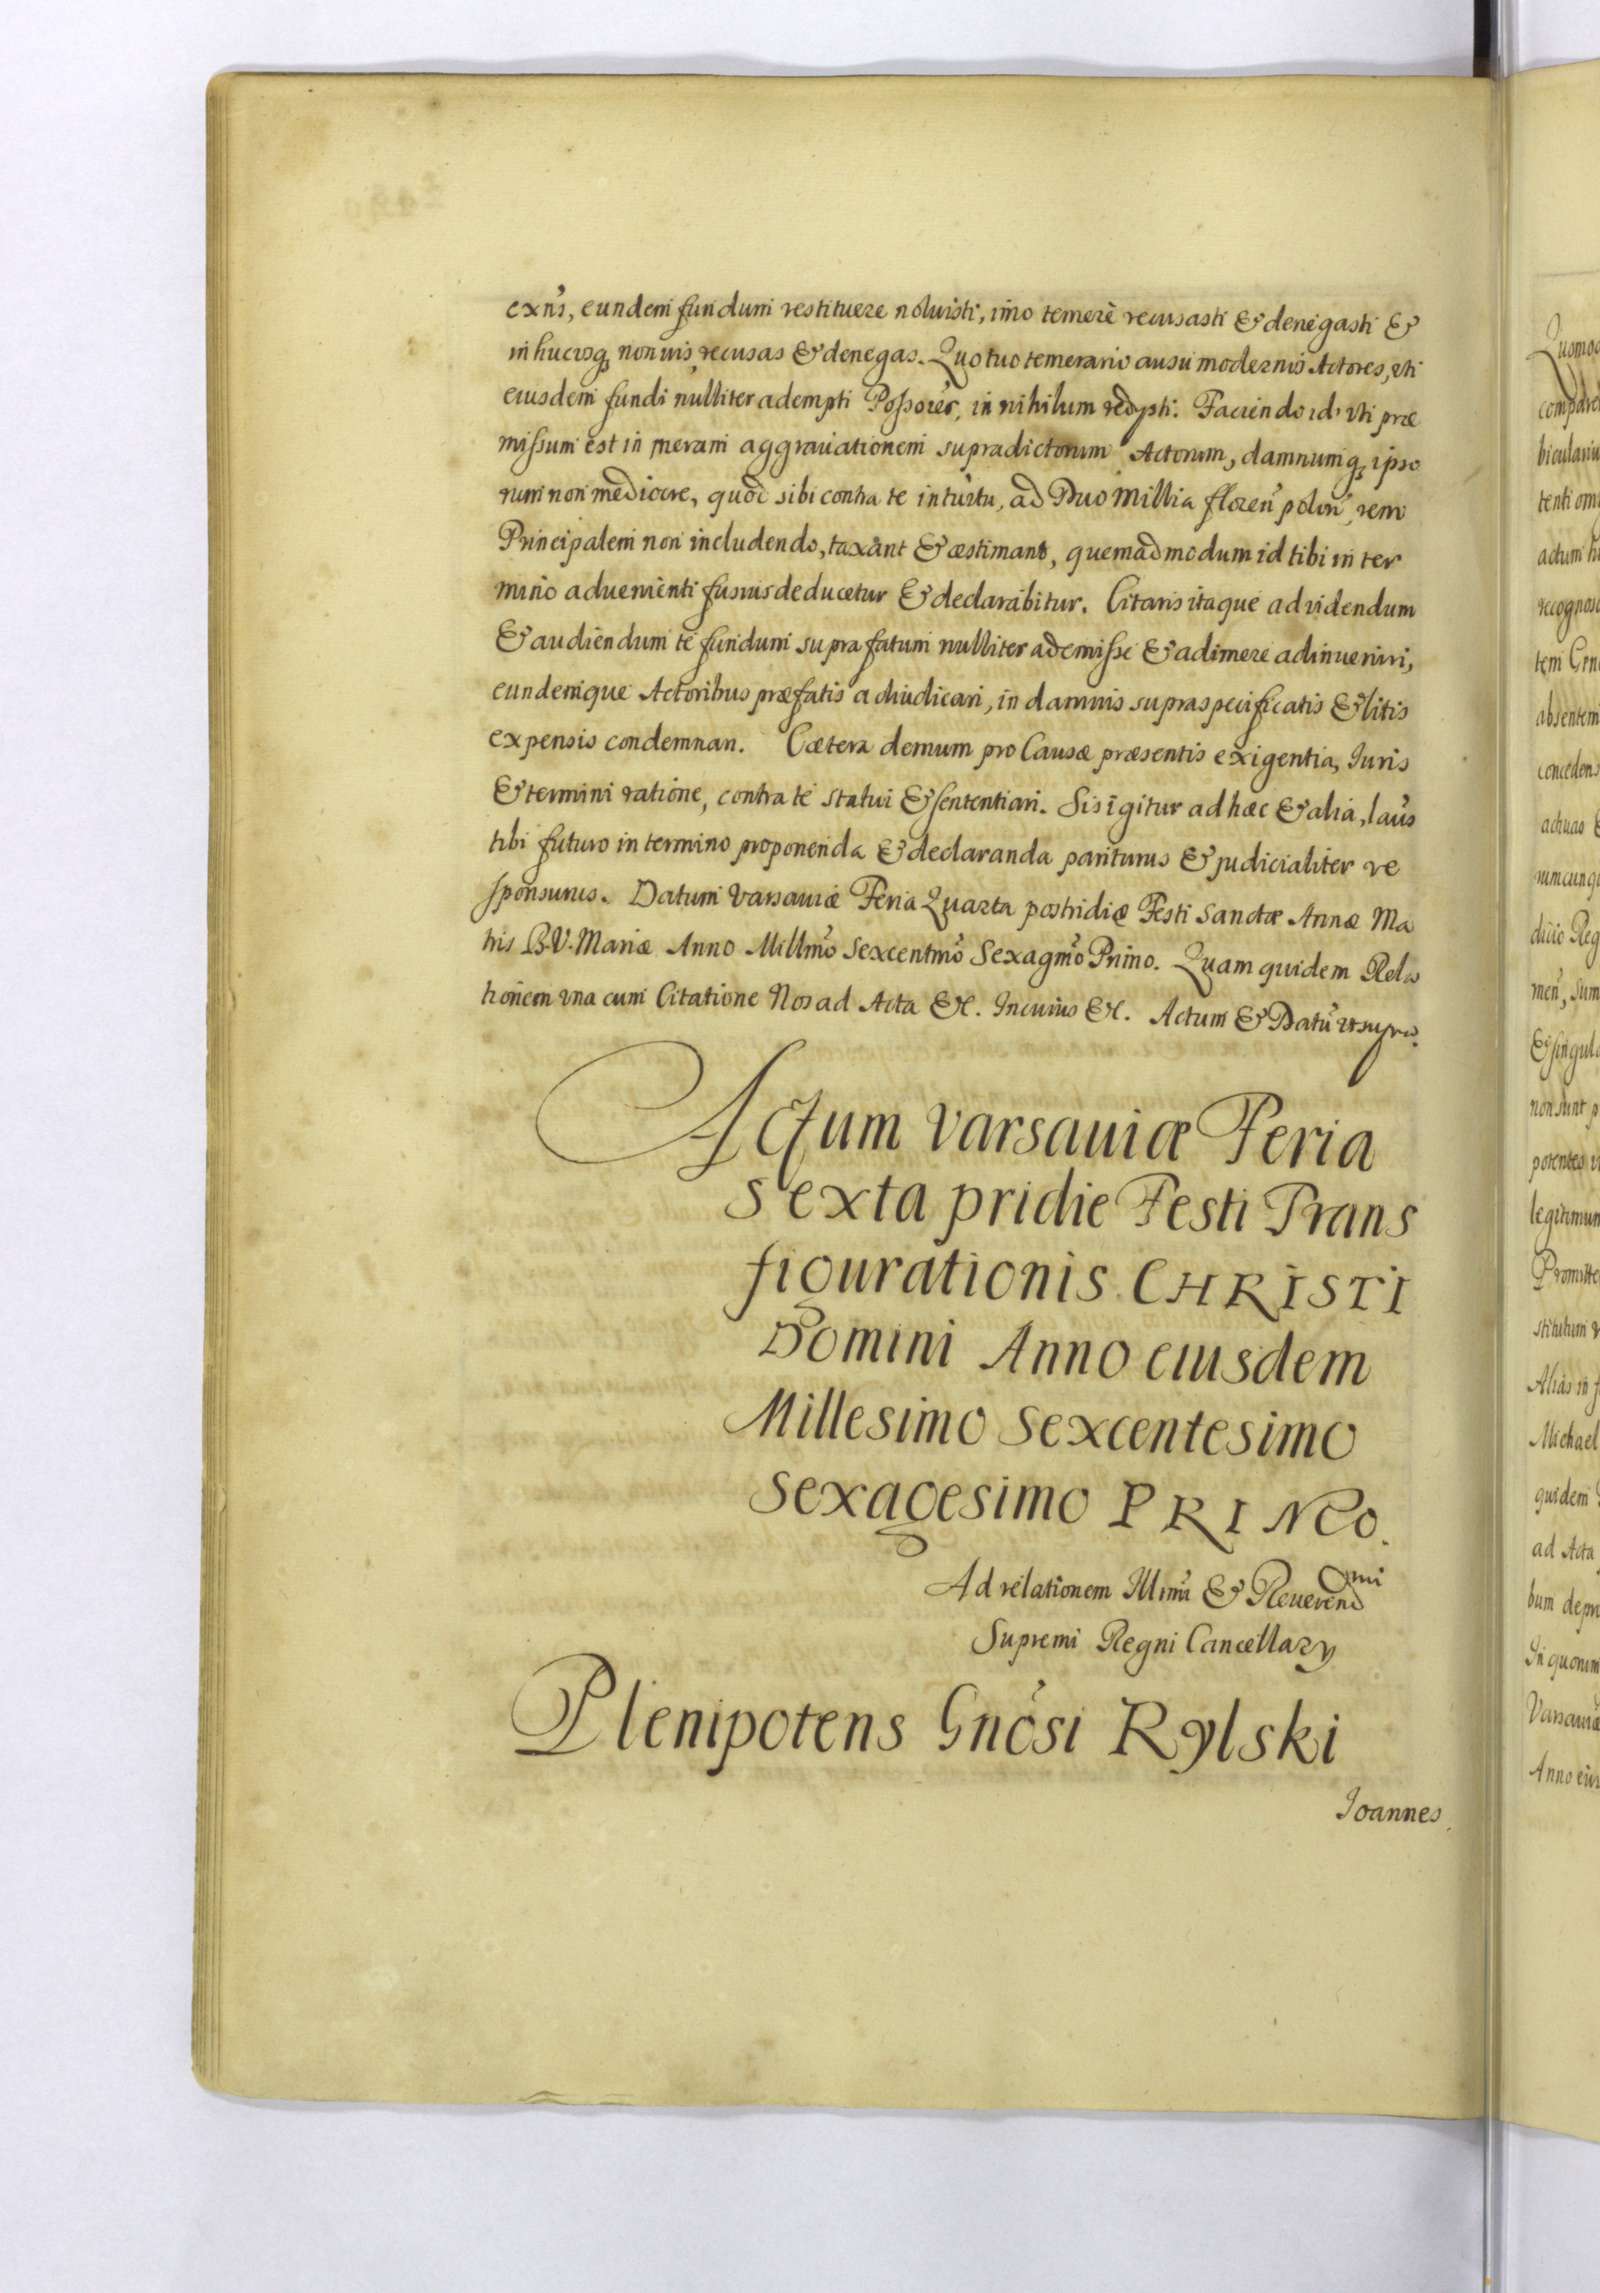 exñs, eundem fundum restituere noluisti, imo temerè recusasti & denegasti &
in hucusq; non vis, recusas & denegas. Quo tuo temerario ausu modernos Actores, vti
eiusdem fundi nulliter adempti Possores, in nihilum redegisti. Faciendo id vti præ
missum est in meram aggrauationem supradictorum Actorum, damnumq; ipso
rum non mediocre, quod sibi contra te intuitu, ad Duo Millia floreñ polon, rem
Principalem non includendo, taxant & æstimant, quemadmodum id tibi in ter
mino aduenienti fusius deducetur & declarabitur. Citaris itaque ad videndum
& audiendum te fundum suprafatum nulliter ademisse & adimere adinueniri,
eundemque Actoribus præfatis adiudicari, in damnis supraspecificatis & litis
expensis condemnari. Cætera demum pro Causæ præsentis exigentia, Iuris
& termini ratione, contra te statui & sententiari. Sis igitur ad hæc & alia, latius
tibi futuro in termino proponenda & declaranda pariturus & judicialiter re
sponsurus. Datum Varsauiæ Feria Quarta postridie Festi Sanctæ Annæ Ma
tris B.V. Mariæ Anno Millmo Sexcentmo Sexagmo Primo. Quam quidem Rela
tionem vna cum Citatione Nos ad Acta &c. In cuius &c. Actum & Datũ vt supra.
Actum Varsauiæ Feria
Sexta pridie Festi Trans
figurationis CHRISTI
Domini Anno eiusdem
Millesimo Sexcentesimo
Sexagesimo PRIMO.
Ad relationem Illmi & Reuerendmi
Supremi Regni Cancellary
Plenipotens Gnosi Rylski
Ioannes